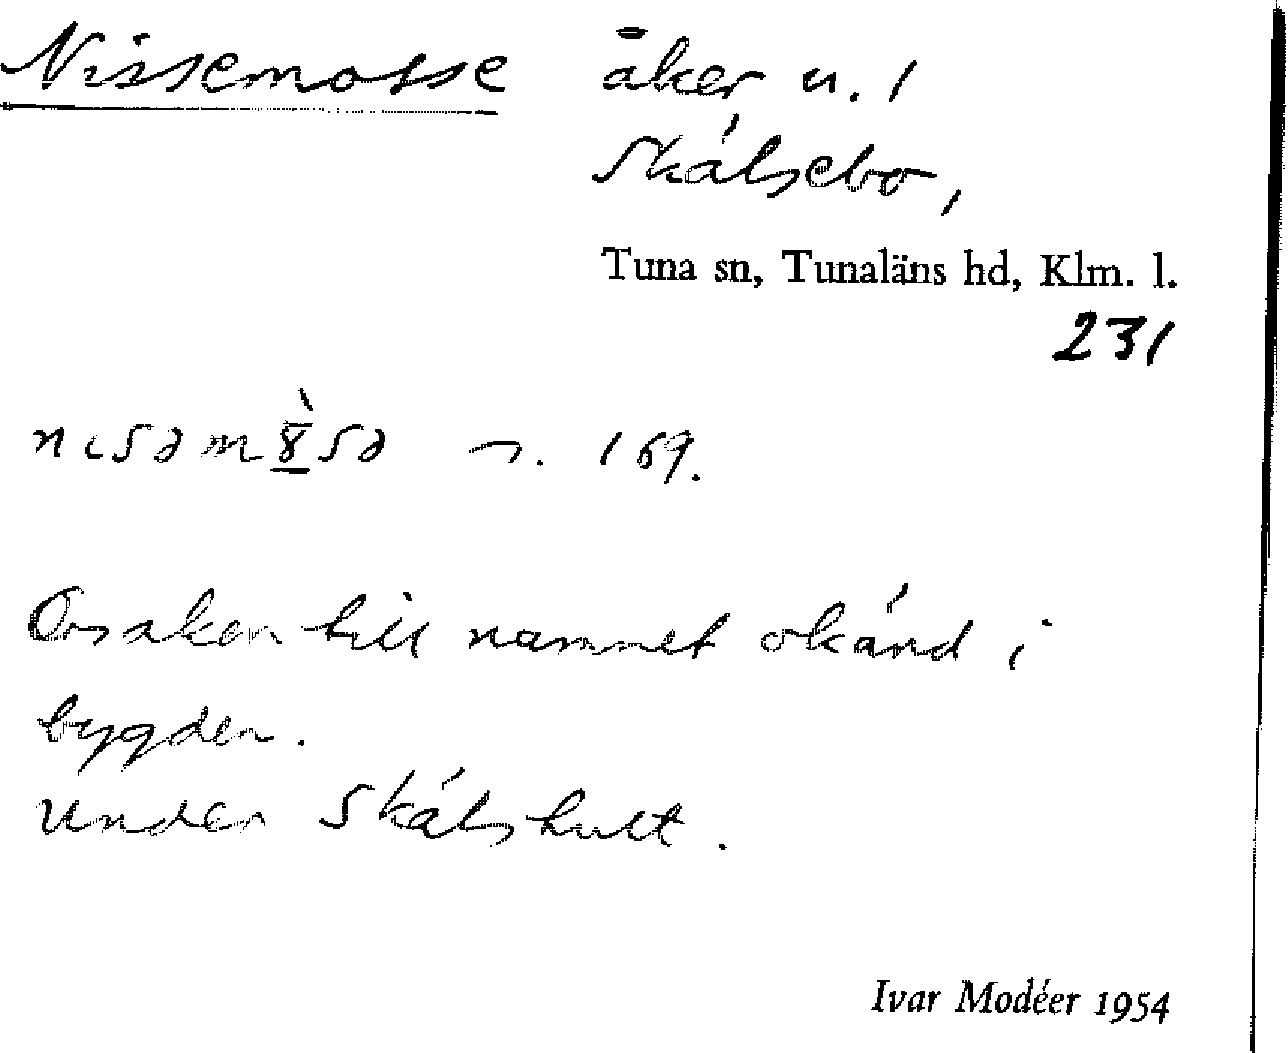 Nissemosse åker u. 1
Skálsebo,
Tuna sn, Tunaläns hd, Klm. l.
231
169.
Orsaken till namnet okänd i
bygden.
Under Skálshult.
Ivar Modéer 1954